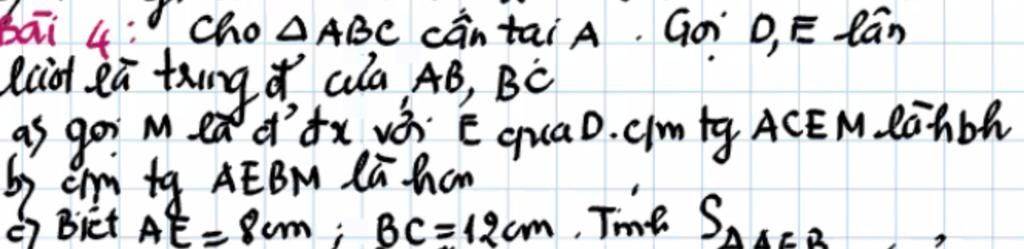 Bài 4: Cho △ABC cân tại A. Gọi D, E lần
lượt là trung đ' của AB, BC
a, gọi M là đ' đx với E qua D. c/m tg ACEM là hbh
b, c/m tg AEBM là hcn
c, Biết AE = 8cm; BC = 12cm. Tính S△AEB